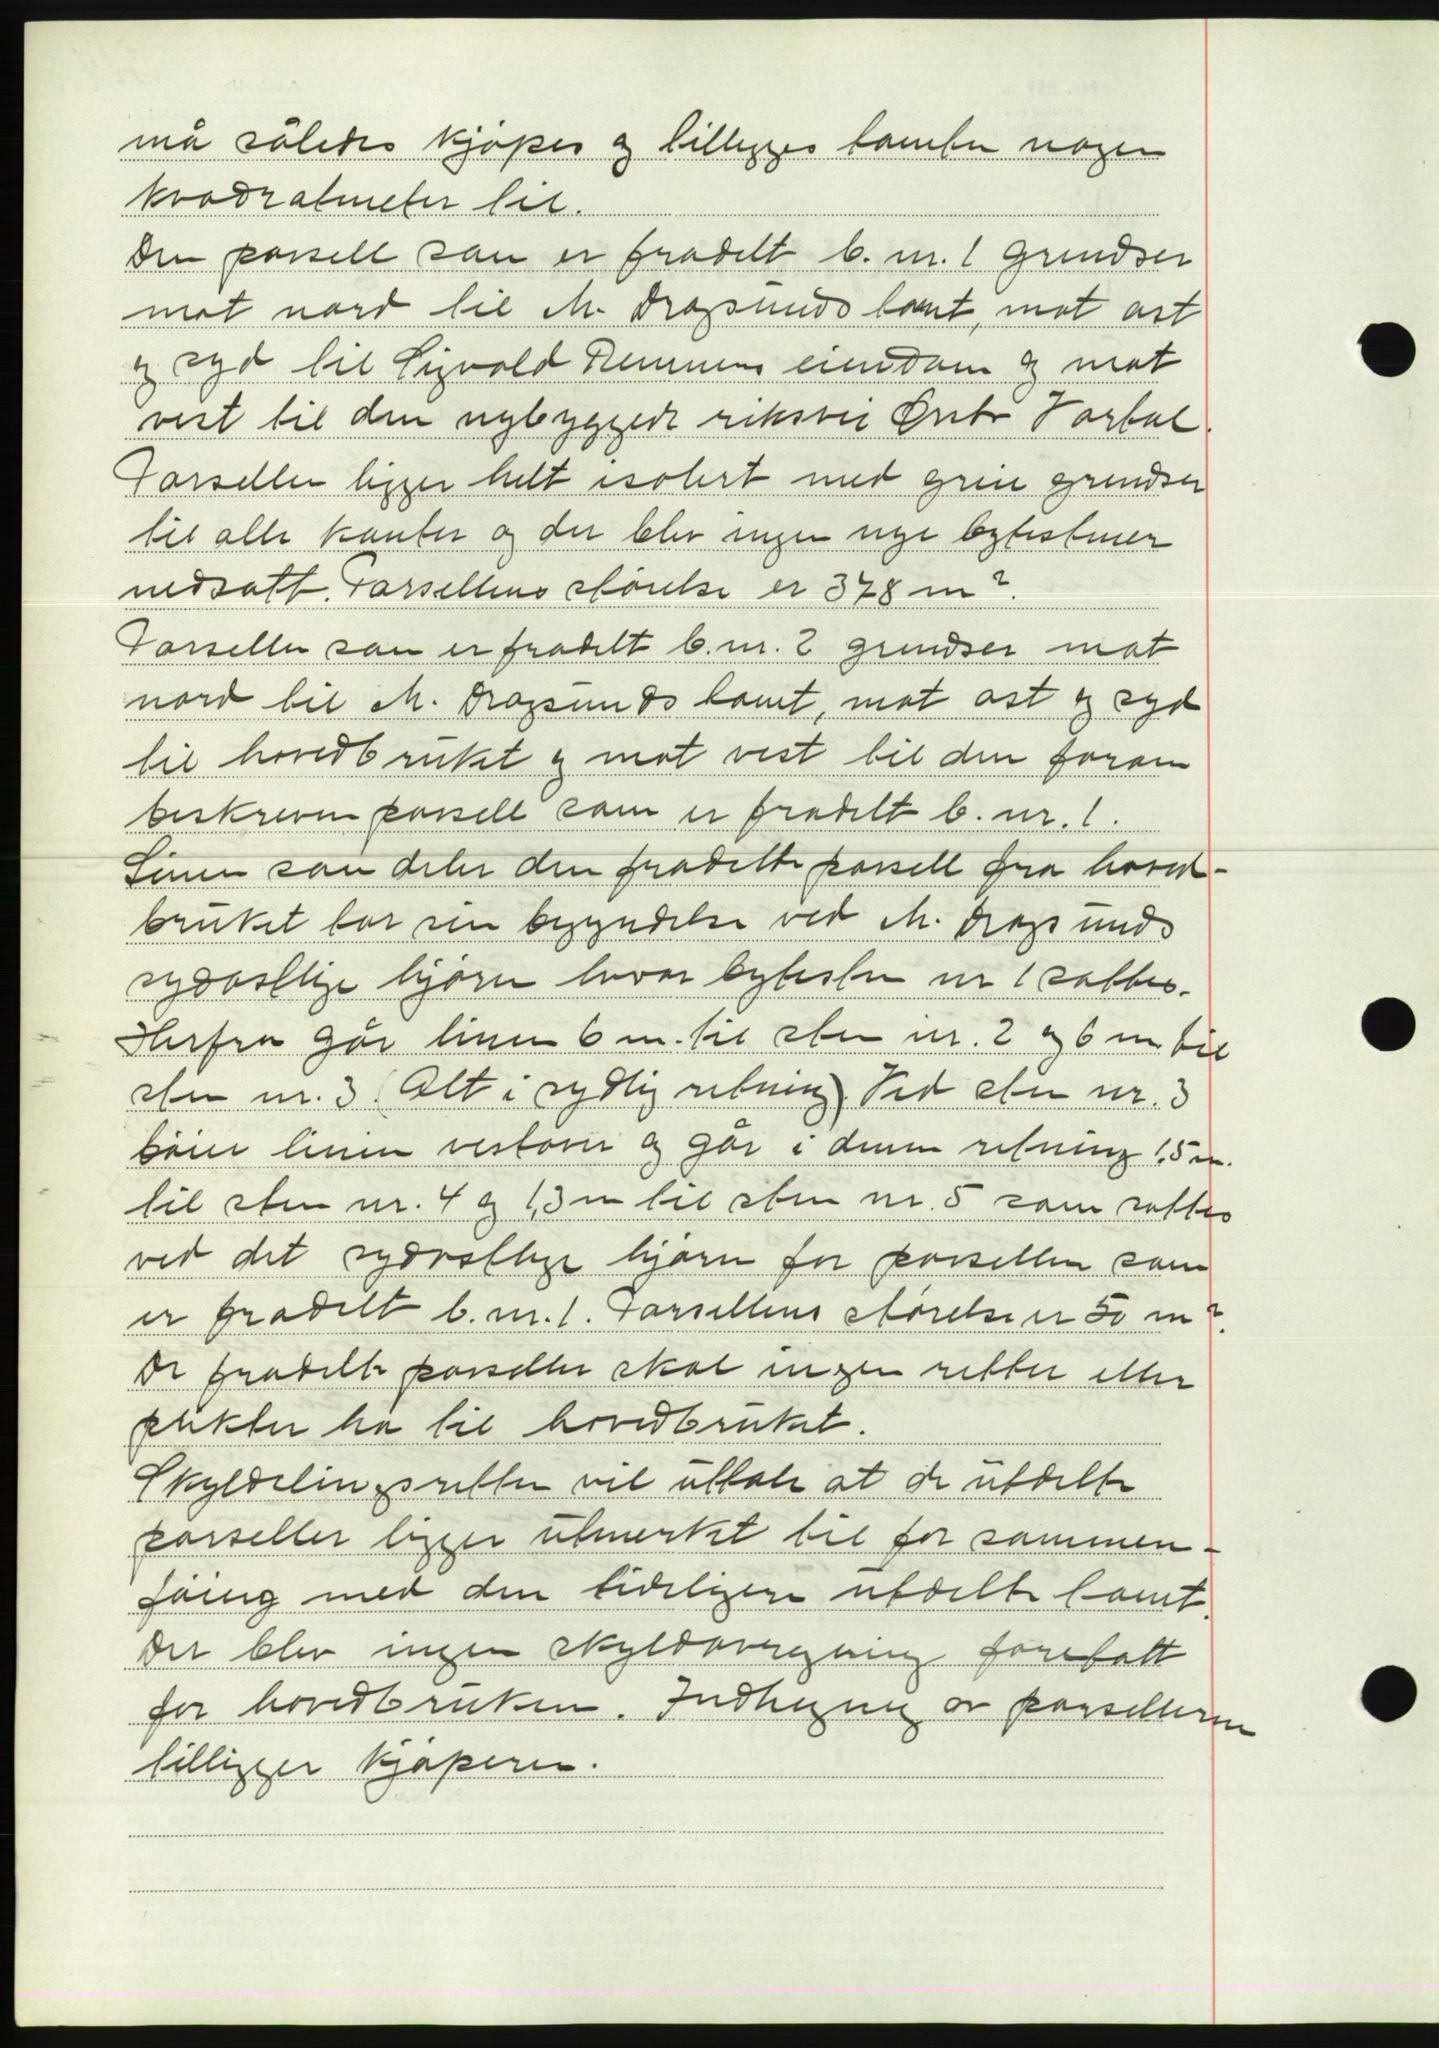 må således kjøpes og tillegges tomten nogen
kvadratmeter til.
Den parsell som er fradelt b. nr. 1 grendser
mot nord til M. Dragsunds tomt, mot øst
og syd til Sigvald Remmens eiendom og mot
vest til den nybyggede riksvei
Parsellen ligger helt isolert med greie grendser
til alle kanter og der blev ingen nye bytestener
nedsatt. Parsellens størelse er 378 m².
Parsellen som er fradelt b. nr. 2 grendser mot
nord til M. Dragsunds tomt, mot øst og syd
til hovedbruket og mot vest til den foran
beskreven parsell som er fradelt b. nr. 1.
Linen som deler den fradelte parsell fra hoved-
bruket tar sin begyndelse ved M. Dragsunds
sydøstlige hjørne hvor bytesten nr 1 sattes.
Herfra går linen 6 m. til sten nr. 2 og 6 m til
sten nr. 3 (Alt i sydlig retning). Ved sten nr. 3
bøier linien vestover og går i denne retning 1,5 m.
til sten nr. 4 og 1,3 m til sten nr. 5 som sattes
ved det sydøstlige hjørne for parsellen som
er fradelt b. nr. 1. Parsellens størelse er 50 m².
De fradelte parseller skal ingen retter eller
plikter ha til hovedbruket.
Skyldelingsretten vil uttale at de utdelte
parseller ligger utmerket til for sammen-
føing med den tideligere utdelte tomt.
Der blev ingen skyldovregning foretatt
for hovedbruken. Indhegning av parsellerne
tilligger kjøperen.